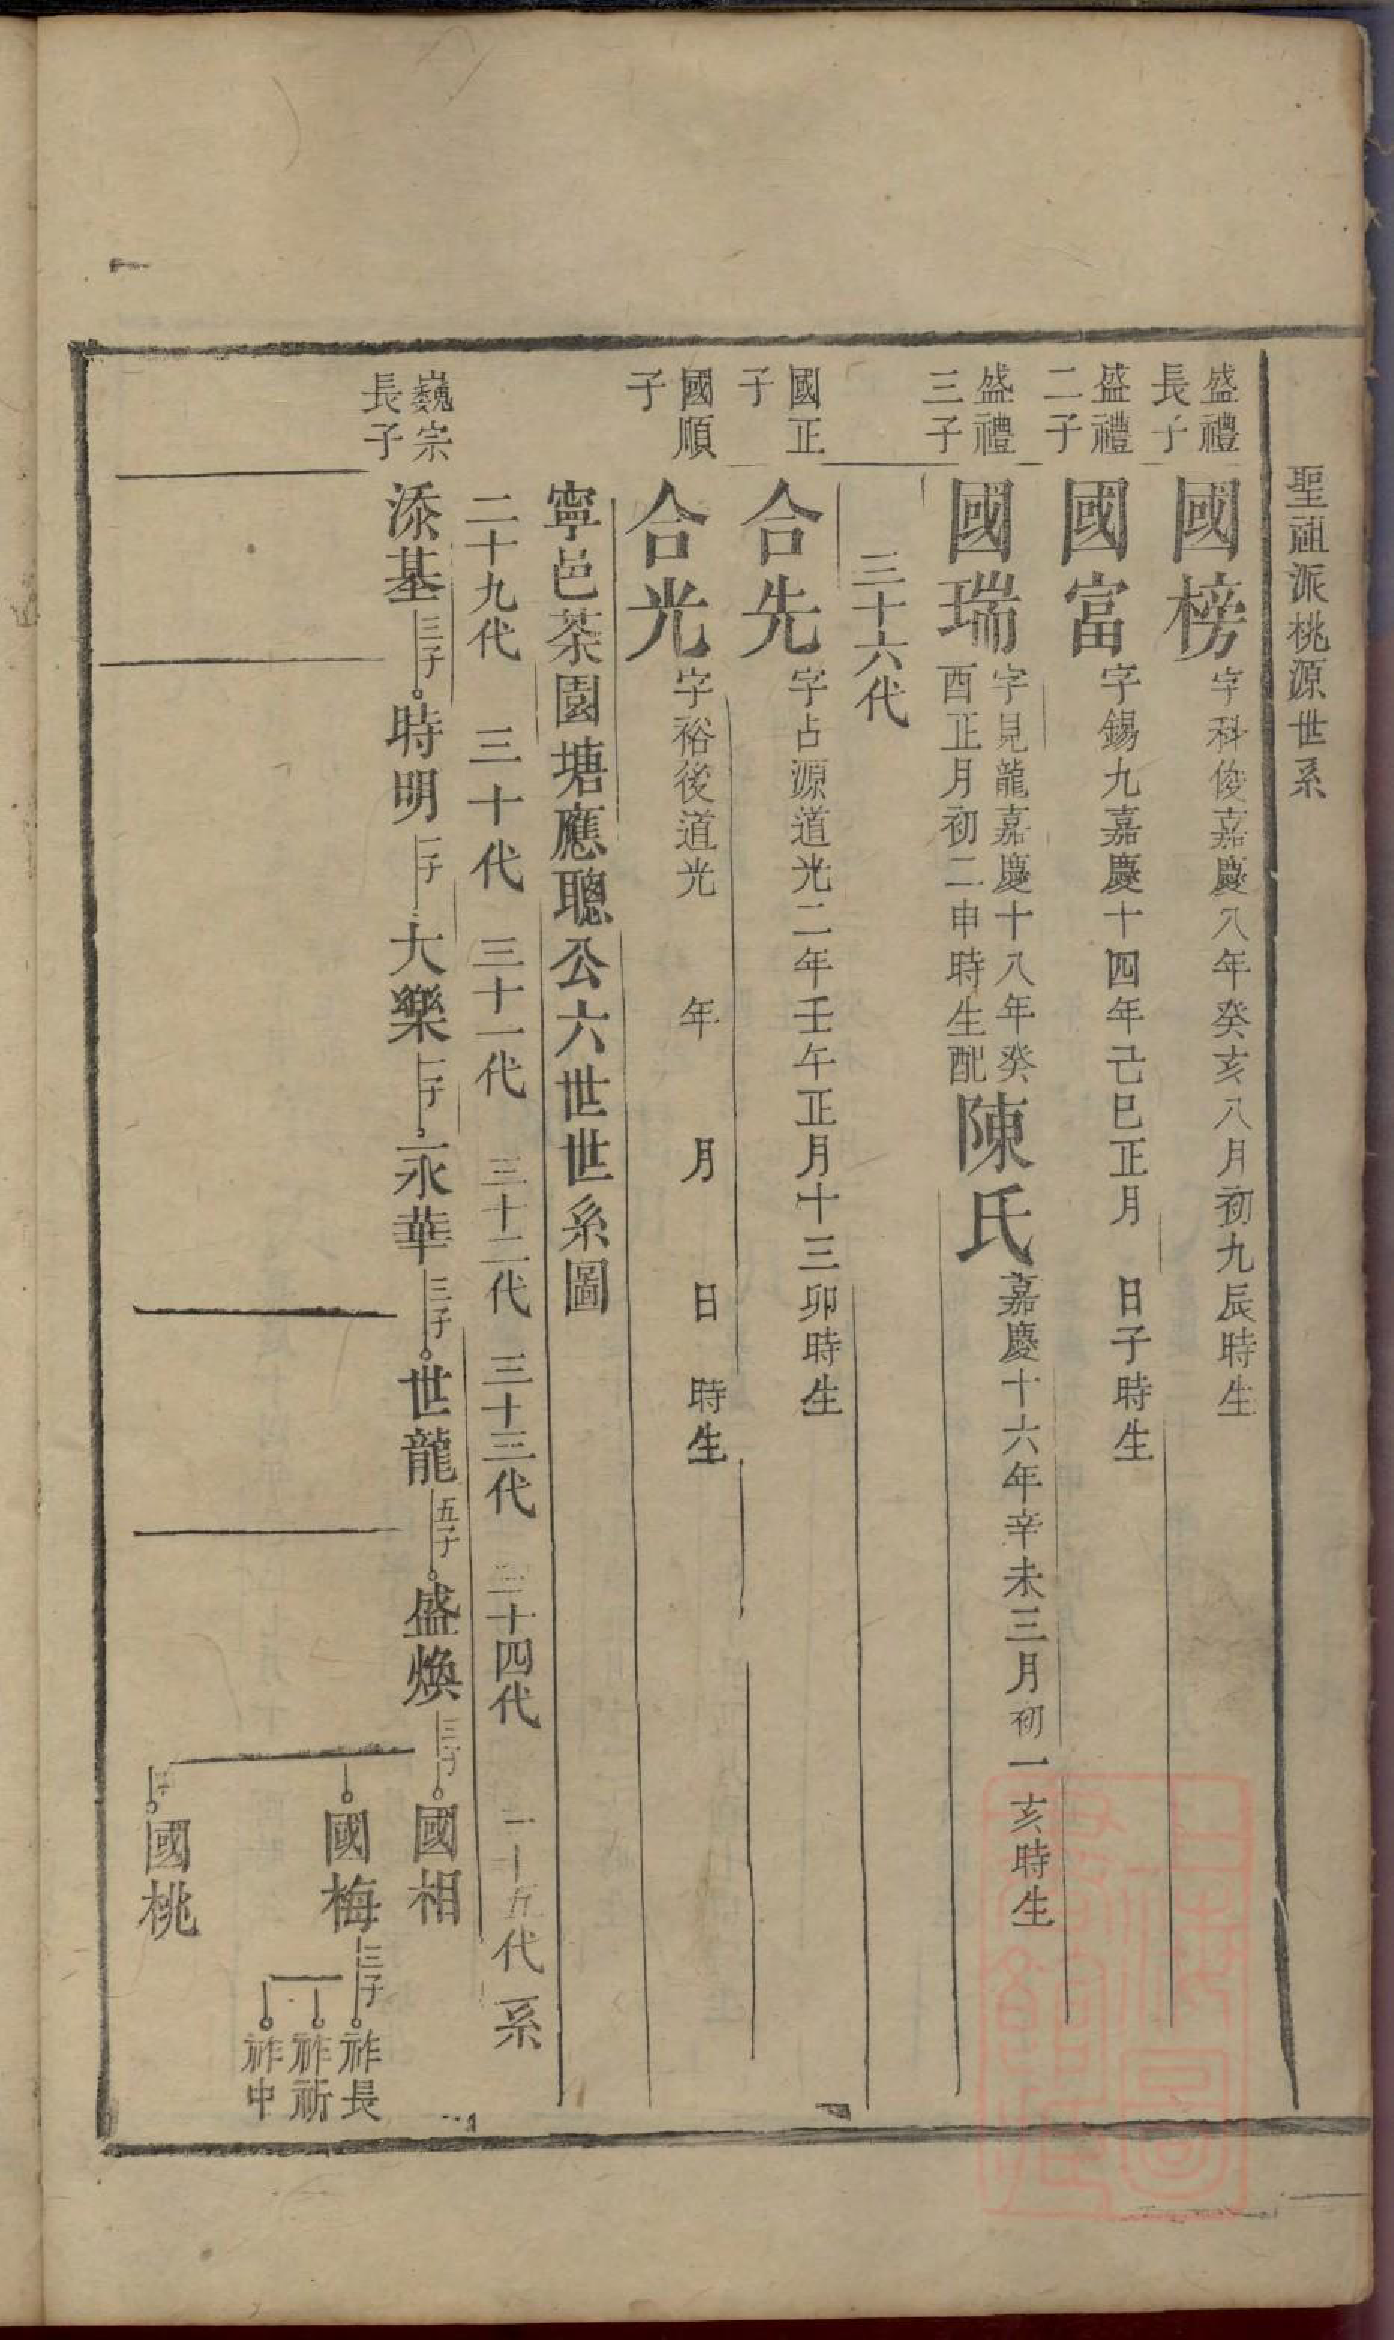 聖祖派桃源世系
盛禮長子
國榜字科俊嘉慶八年癸亥八月初九辰時生
盛禮二子
國富字錫九嘉慶十四年己巳正月 日子時生
盛禮三子
國瑞字見龍嘉慶十八年癸酉正月初二申時生配陳氏嘉慶十六年辛未三月初一亥時生
三十六代
國正子
合先字占源道光二年壬午正月十三卯時生
國順子
合光字裕後道光 年 月 日 時生
寧邑茶園塘應聰公六世世系圖
二十九代 三十代 三十一代 三十二代 三十三代 三十四代 三十五代 系
巍宗長子
添基三子時明一子大樂一子永華三子世龍五子盛煥三子國相
國梅三子祚長
祚祈
祚中
國桃